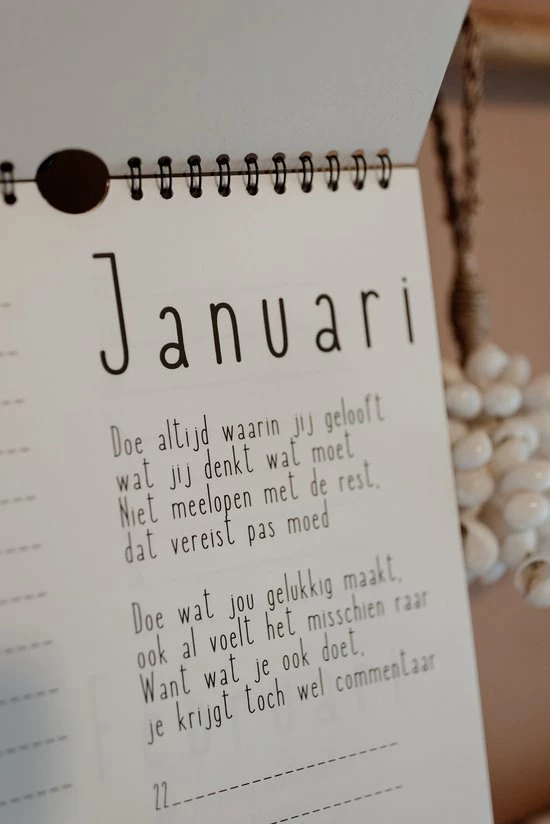 Januari
Doe altijd waarin jij gelooft
wat jij denkt wat moet
Niet meelopen met de rest,
dat vereist pas moed
Doe wat jou gelukkig maakt,
ook al voelt het misschien raar
Want wat je ook doet,
je krijgt toch wel commentaar
22